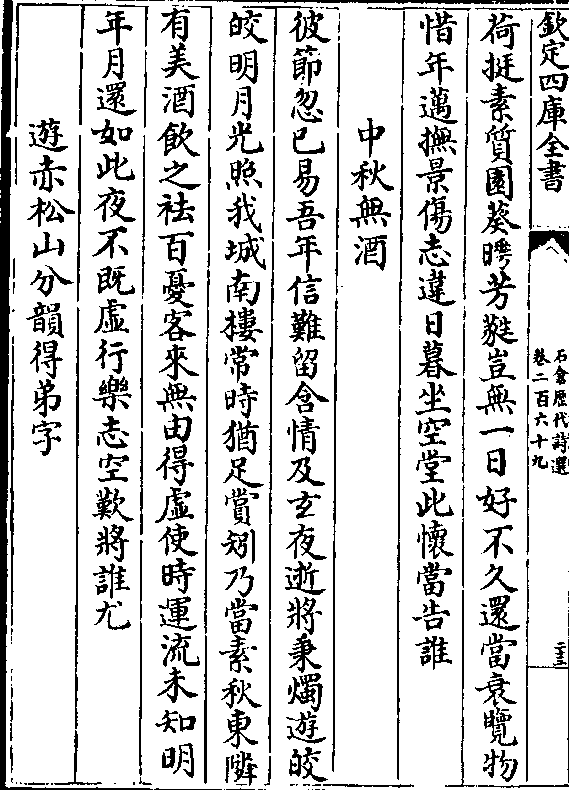 欽定四庫全書
石倉歷代詩選
卷二百六十九
二三
荷挺素質園葵曄芳蕤豈無一日好不久還當衰覽物
惜年邁撫景傷志違日暮坐空堂此懷當告誰
中秋無酒
彼節忽已易吾年信難留含情及玄夜逝將秉燭遊皎
皎明月光照我城南樓常時猶足賞矧乃當素秋東隣
有美酒飲之祛百憂客來無由得虛使時運流未知明
年月還如此夜不既虛行樂志空歎將誰尤
遊赤松山分韻得弟字